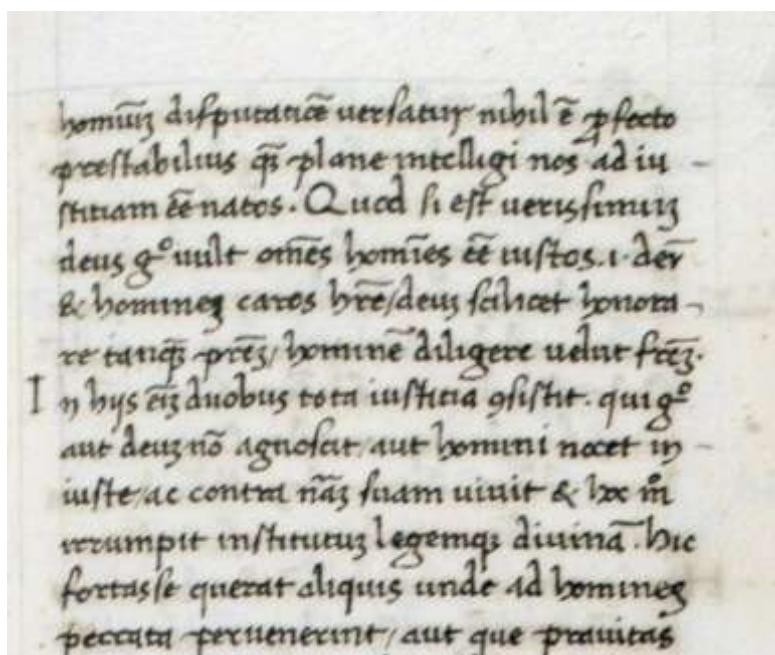 homiũʒ disputatiõe uersatur nihil ẽ ꝓfecto
prestabilius qʒ̃ plane intelligi nos ad iu
stitiam ẽe natos. Quod si est uerissimuʒ
deus gͦ uult om̃es homĩes ẽe iustos .i. deũ
& homines caros hr̃e/ deuʒ scilicet honora
re tanqʒ̃ pr̃eʒ/ hominẽ diligere uelut fr̃eʒ.
In hijs eĩʒ duobus tota iustitia ꝯsistit. qui gͦ
aut deuʒ nõ agnoscit/ aut homini nocet in
iuste/ ac contra nãʒ suam uiuit & hoc mͦ
irrumpit institutuʒ legemqʒ diuinã. Hic
fortasse querat aliquis unde ad homines
peccata peruenerint/ aut que prauitas